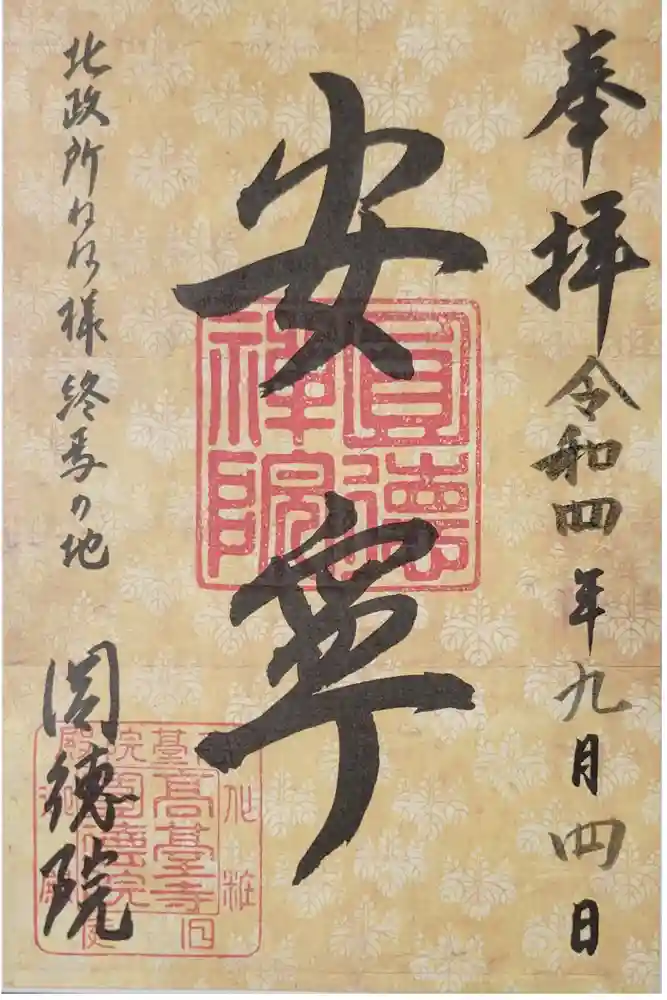 奉拝 令和四年九月四日
安寧
北政所ねね様終焉の地
圓徳院
圓德
禅院
高臺寺
圓德院
化粧